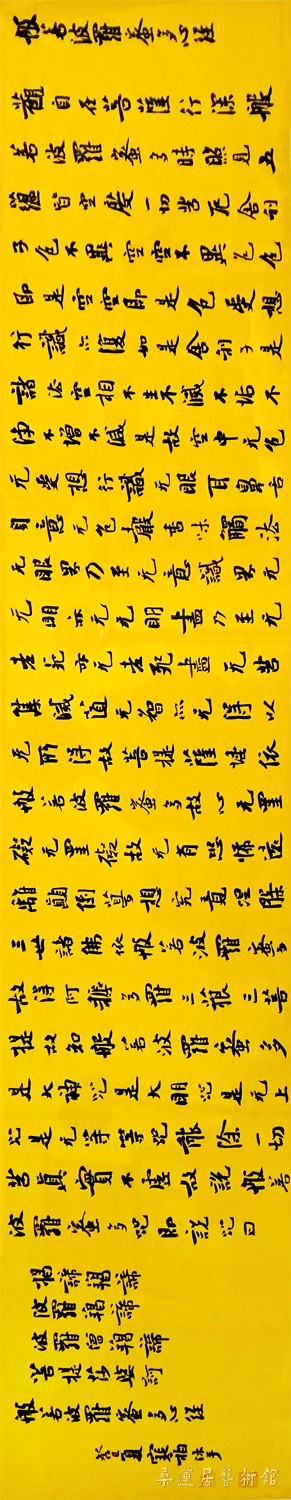 般若波羅蜜多心经
觀自在菩薩行深般
若波羅蜜多時照見五
蘊皆空度一切苦厄舍利
子色不異空空不異色色
即是空空即是色受想
行識亦復如是舍利子是
諸法空相不生不滅不垢不
净不增不減是故空中无色
无受想行識无眼耳鼻舌
身意无色聲香味觸法
无眼界乃至无意識界无
无明亦无无明盡乃至无
老死亦无老死盡无苦
集滅道无智亦无得以
无所得故菩提薩埵依
般若波羅蜜多故心无罣
礙无罣礙故无有恐怖遠
離顛倒夢想究竟涅槃
三世諸佛依般若波羅蜜多
故得阿耨多羅三藐三菩
提故知般若波羅蜜多
是大神咒是大明咒是无上
咒是无等等咒能除一切
苦真實不虛故說般若
波羅蜜多咒即說咒曰
揭諦揭諦
波羅揭諦
波羅僧揭諦
菩提莎婆訶
般若波羅蜜多心经
夏寒柏
桑蓮居藝術館